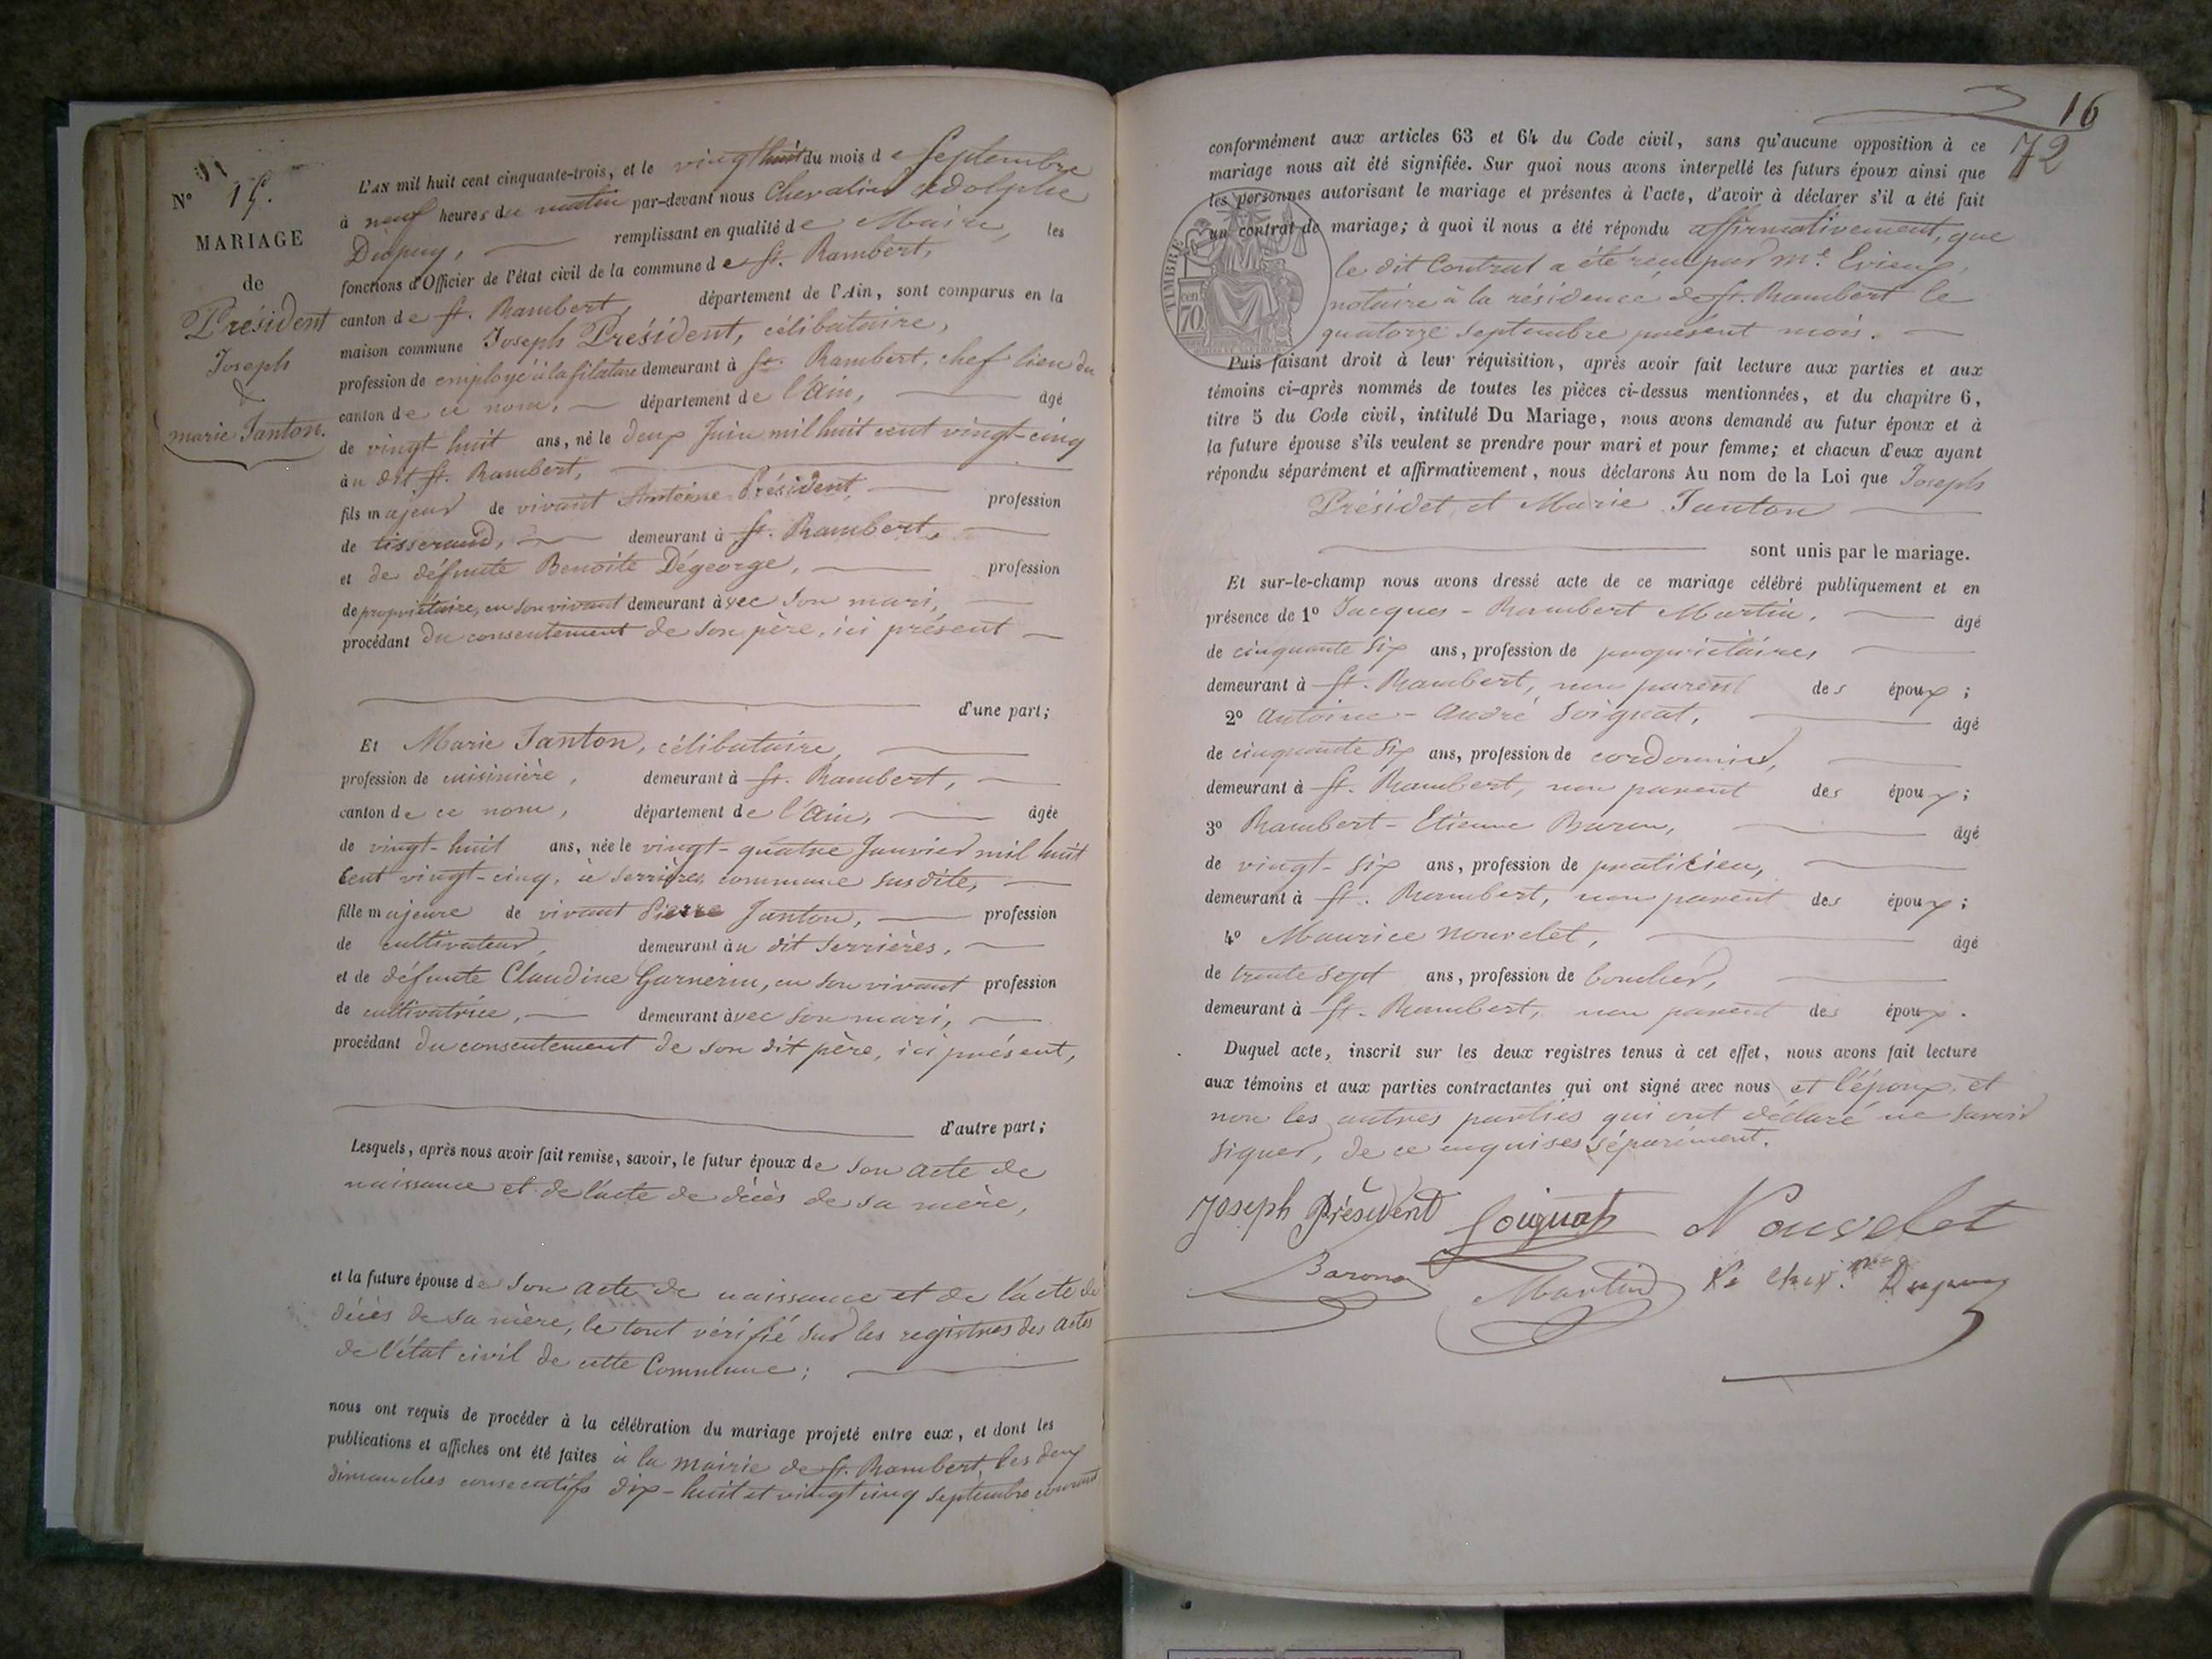 N° 15.
MARIAGE
de
Président
Joseph
&
marie Janton.
L'AN mil huit cent cinquante-trois, et le vingt huit du mois de Septembre
à neuf heures du matin par-devant nous Chevalier adolphe
Dupuy, remplissant en qualité de Maire, les
fonctions d'Officier de l'état civil de la commune de St. Rambert,
canton de St. Rambert, département de l'Ain, sont comparus en la
maison commune Joseph Président, célibataire,
profession de employé à la filature demeurant à St. Rambert, chef lieu du
canton de ce nom, département de l'Ain, âgé
de vingt-huit ans, né le deux Juin mil huit cent vingt-cinq
au dit St. Rambert,
fils majeur de vivant Antoine Président, profession
de tisserand, demeurant à St. Rambert,
et de défunte Benoite Dégeorge, profession
de propriétaire, en son vivant demeurant avec son mari,
procédant du consentement de son père, ici présent
d'une part;
Et Marie Janton, célibataire,
profession de cuisinière, demeurant à St. Rambert,
canton de ce nom, département de l'Ain, âgée
de vingt-huit ans, née le vingt-quatre Janvier mil huit
cent vingt-cinq, à Serrières, commune susdite,
fille majeure de vivant Pierre Janton, profession
de cultivateur, demeurant au dit Serrières,
et de défunte Claudine Garnerin, en son vivant profession
de cultivatrice, demeurant avec son mari,
procédant du consentement de son dit père, ici présent,
d'autre part;
Lesquels, après nous avoir fait remise, savoir, le futur époux de son acte de
naissance et de l'acte de décès de sa mère,
et la future épouse de son acte de naissance et de l'acte de
décès de sa mère, le tout vérifié sur les registres des actes
de l'état civil de cette Commune;
nous ont requis de procéder à la célébration du mariage projeté entre eux, et dont les
publications et affiches ont été faites à la mairie de St. Rambert, les deux
dimanches consecutifs dix-huit et vingt cinq septembre courant
16
72
conformément aux articles 63 et 64 du Code civil, sans qu'aucune opposition à ce
mariage nous ait été signifiée. Sur quoi nous avons interpellé les futurs époux ainsi que
les personnes autorisant le mariage et présentes à l'acte, d'avoir à déclarer s'il a été fait
un contrat de mariage; à quoi il nous a été répondu affirmativement, que
le dit Contrat a été reçu par Me. Evieux,
notaire à la résidence de St. Rambert le
quatorze septembre présent mois.
TIMBRE
cen
70
Puis faisant droit à leur réquisition, après avoir fait lecture aux parties et aux
témoins ci-après nommés de toutes les pièces ci-dessus mentionnées, et du chapitre 6,
titre 5 du Code civil, intitulé Du Mariage, nous avons demandé au futur époux et à
la future épouse s'ils veulent se prendre pour mari et pour femme; et chacun d'eux ayant
répondu séparément et affirmativement, nous déclarons Au nom de la Loi que Joseph
Présidet, et Marie Janton
sont unis par le mariage.
Et sur-le-champ nous avons dressé acte de ce mariage célébré publiquement et en
présence de 1° Jacques-Rambert Martin, âgé
de cinquante six ans, profession de propriétaire,
demeurant à St. Rambert, non parent des époux;
2° Antoine-André Soignat, âgé
de cinquante six ans, profession de cordonnier,
demeurant à St. Rambert, non parent des époux;
3° Rambert-Etienne Baron, âgé
de vingt-six ans, profession de praticien,
demeurant à St. Rambert, non parent des époux;
4° Maurice Nouvelet, âgé
de trente sept ans, profession de boucher,
demeurant à St. Rambert, non parent des époux.
Duquel acte, inscrit sur les deux registres tenus à cet effet, nous avons fait lecture
aux témoins et aux parties contractantes qui ont signé avec nous et l'époux, et
non les autres parties qui ont déclaré ne savoir
signer, de ce enquises séparément.
Joseph Président Soignat Nouvelet
Baron Martin Le Chev. Dupuy